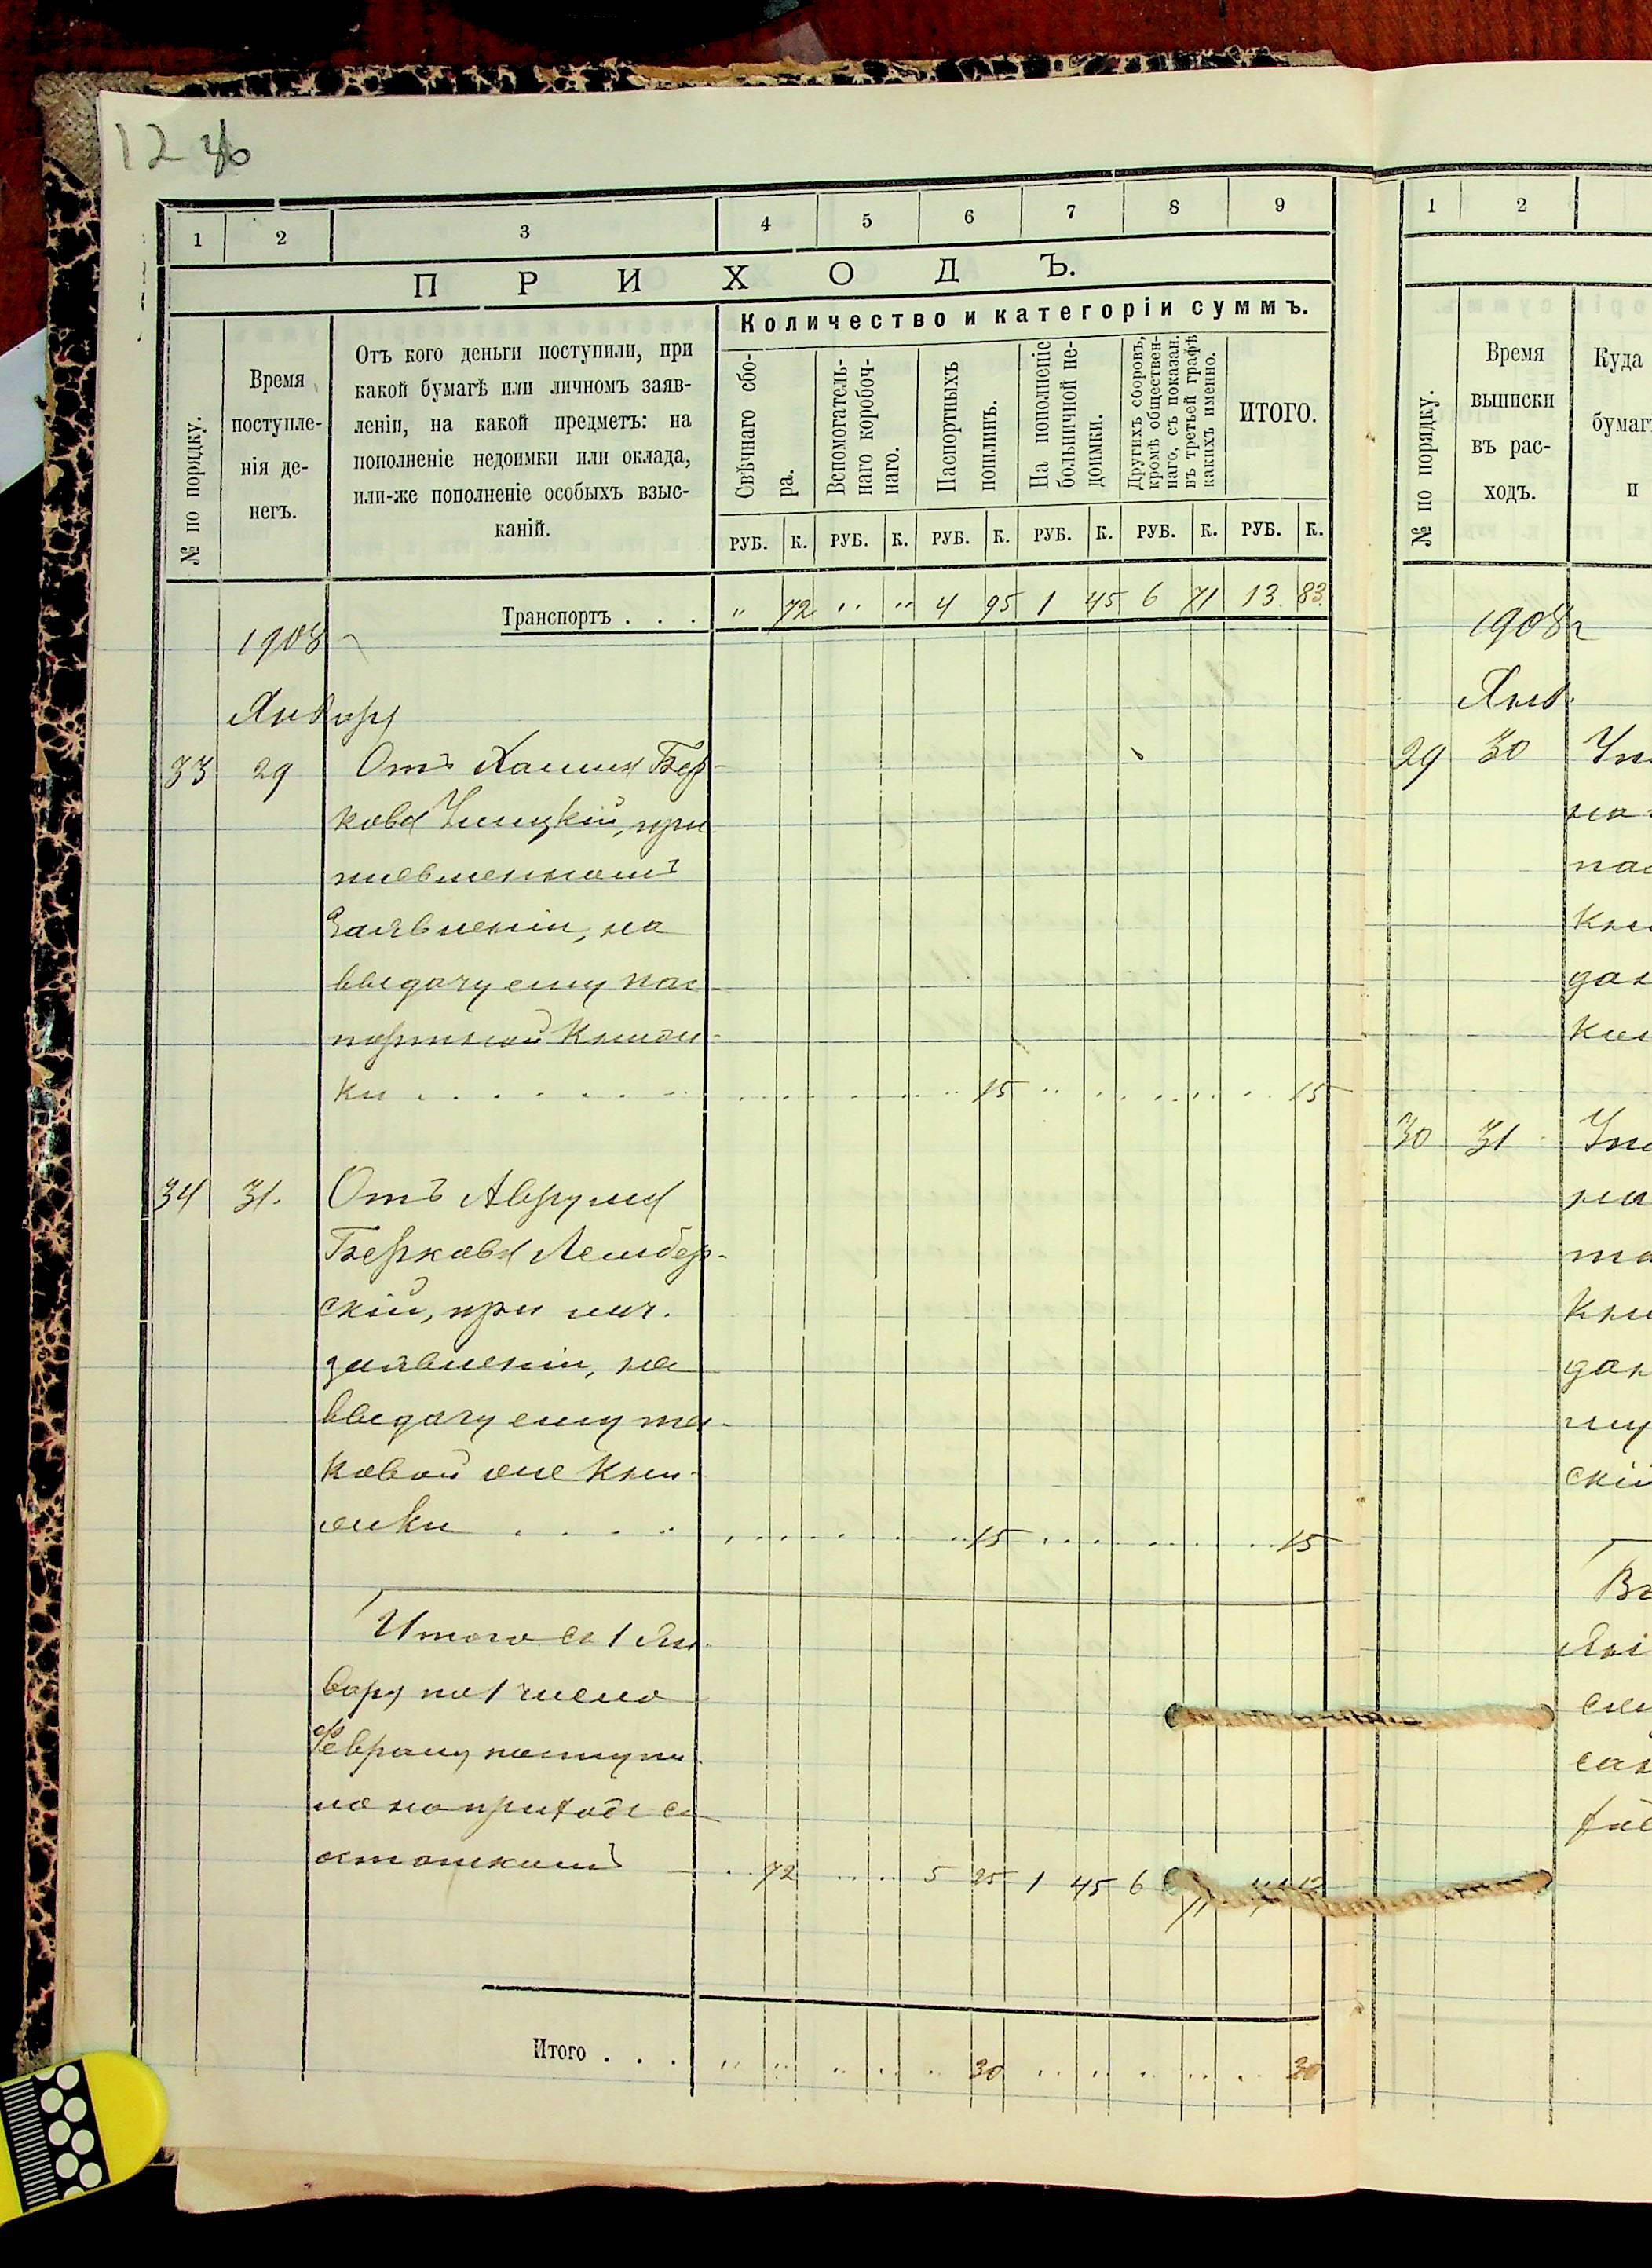 12 об
1 2 3 4 5 6 7 8 9
ПРИХОДЪ.
№ по порядку.
Время
поступле-
нія де-
негъ.
Отъ кого деньги поступили, при
какой бумагѣ или личномъ заяв-
леніи, на какой предметъ: на
пополненіе недоимки или оклада,
или-же пополненіе особыхъ взыс-
каній.
Количество и категоріи суммъ.
Свѣчнаго сбо-
ра.
Вспомогатель-
наго коробоч-
наго.
Паспортныхъ
пошлинъ.
На пополненіе
больничной не-
доимки.
Другихъ сборовъ,
кромѣ обществен-
наго, съ показан.
въ третьей графѣ
какихъ именно.
ИТОГО.
РУБ. К. РУБ. К. РУБ. К. РУБ. К. РУБ. К. РУБ. К.
Транспортъ . . . " 72 " " 4 95 1 45 6 71 13 83
1908
Января
33 29 Отъ Хаима Бер-
кова при
письменномъ
заявленіи, на
выдачу ему пас-
портной книж-
ки . . . . . . 15 . . . . 15
34 31. Отъ Аврума
Беркова Лембер-
скій, при лич.
заявленіи, на
выдачу ему та-
ковой же кни-
жки . . . . 15 . . . . 15
Итого съ 1 Ян-
варя по 1 число
Февраля поступи
ло на приходъ съ
остаткомъ 72 5 25 1 45 6 71
Итого . . . " " " " " 30 " " " " " 30
1 2
№ по порядку.
Время
выписки
въ рас-
ходъ.
Куда
бумаг
п
1908 г
Янв.
29 30
на
пас
кни
дан
ки
30 31
на
та
кни
дан
му
скій
Въ